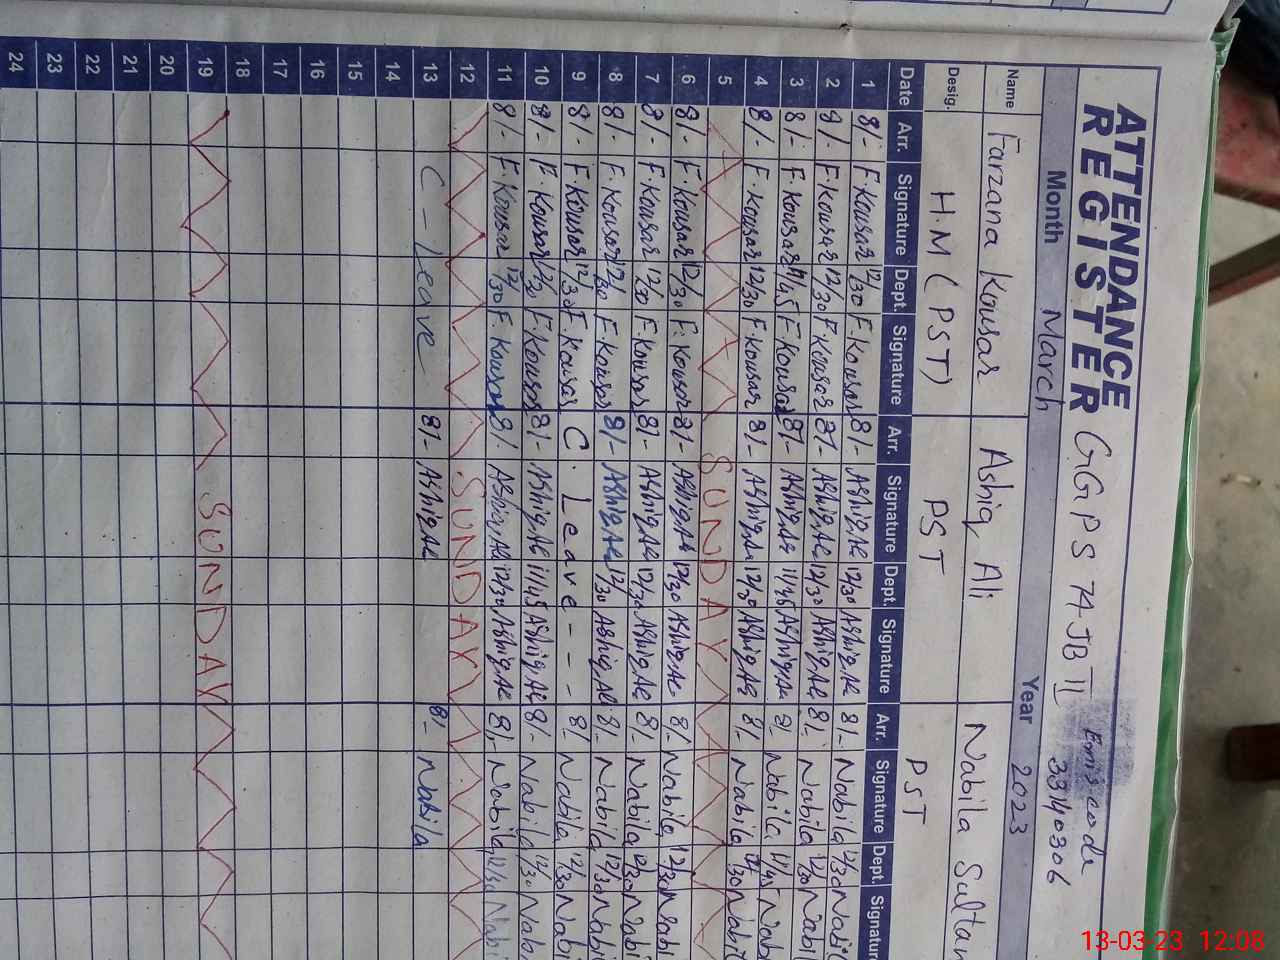 ATTENDANCE REGISTER
GGPS 74 JB II
Emis code
33140306
Month March Year 2023
Name Farzana Kousar Ashiq Ali Nabila Sultan
Desig. H.M (PST) PST PST
Date Arr. Signature Dept. Signature Arr. Signature Dept. Signature Arr. Signature Dept. Signature
1 8/- F.Kousar 12/30 F.Kousar 8/- Ashiq Ali 12/30 Ashiq Ali 8/- Nabila 12/30 Nabil
2 8/- F.Kousar 12/30 F.Kousar 8/- Ashiq Ali 12/30 Ashiq Ali 8/- Nabila 12/30 Nabil
3 8/- F.Kousar 11/45 F.Kousar 8/- Ashiq Ali 11/45 Ashiq Ali 8/- Nabila 11/45 Nabi
4 8/- F.Kousar 12/30 F.Kousar 8/- Ashiq Ali 12/30 Ashiq Ali 8/- Nabila 12/30 Nabil
5 SUNDAY
6 8/- F.Kousar 12/30 F.Kousar 8/- Ashiq Ali 12/30 Ashiq Ali 8/- Nabila 12/30 Nabi
7 8/- F.Kousar 12/30 F.Kousar 8/- Ashiq Ali 12/30 Ashiq Ali 8/- Nabila 12/30 Nabi
8 8/- F.Kousar 12/30 F.Kousar 8/- Ashiq Ali 12/30 Ashiq Ali 8/- Nabila 12/30 Nabi
9 8/- F.Kousar 12/30 F.Kousar C. Leave - - - 8/- Nabila 12/30 Nabi
10 8/- F.Kousar 12/30 F.Kousar 8/- Ashiq Ali 11/45 Ashiq Ali 8/- Nabila 12/30 Nabi
11 8/- F.Kousar 12/30 F.Kousar 8/- Ashiq Ali 12/30 Ashiq Ali 8/- Nabila 12/30 Nabi
12 SUNDAY
13 C - Leave 8/- Ashiq Ali 8/- Nabila
14
15
16
17
18
19 SUNDAY
20
21
22
23
24
13-03-23 12:08